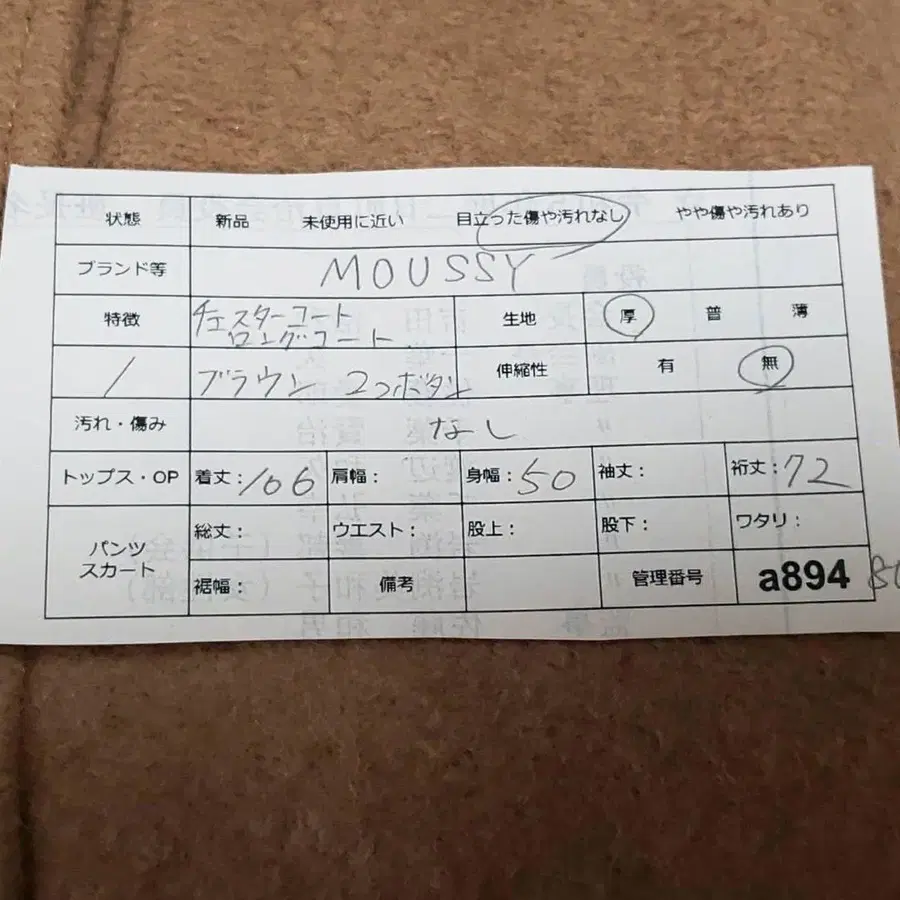 状態 新品 未使用に近い 目立った傷や汚れなし やや傷や汚れあり
ブランド等 MOUSSY
特徴 チェスターコート 生地 厚 普 薄
ロングコート
/ ブラウン 2つボタン 伸縮性 有 無
汚れ・傷み なし
トップス・OP 着丈:106 肩幅: 身幅:50 袖丈: 裄丈:72
パンツ 総丈: ウエスト: 股上: 股下: ワタリ:
スカート
裾幅: 備考 管理番号 a894